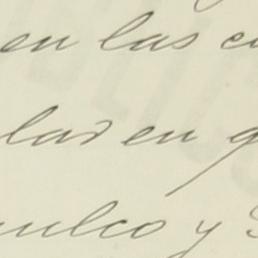 en las
lar en
ulco y